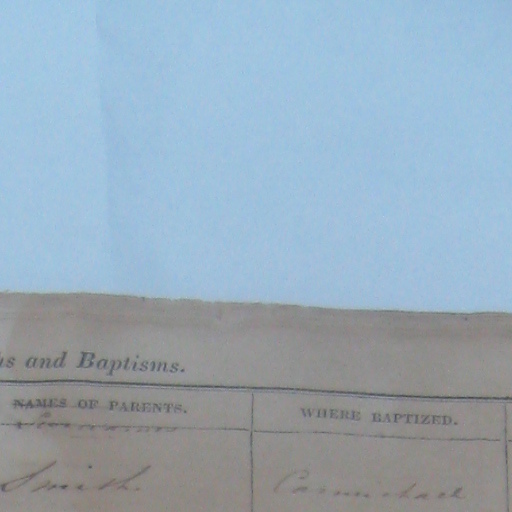 hs and Baptisms.
NAMES OF PARENTS.
WHERE BAPTIZED.
Smith
Carmichael